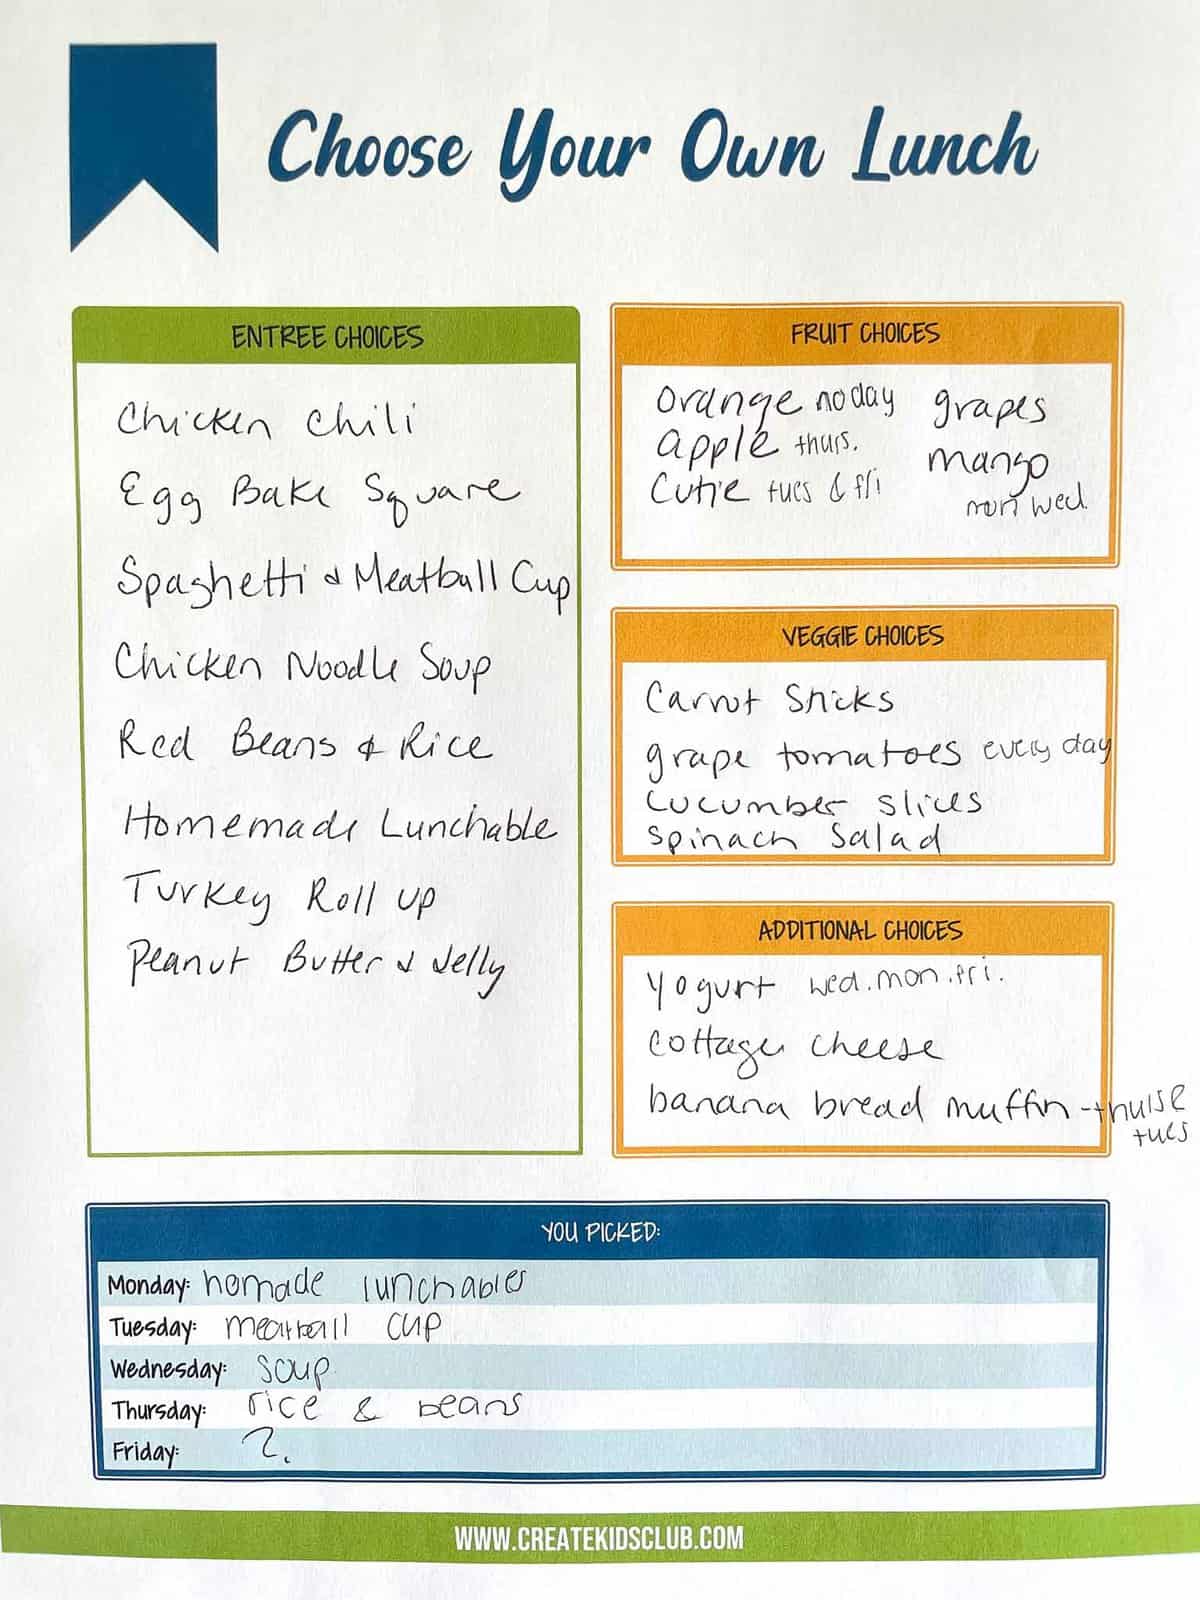 Choose Your Own Lunch
ENTREE CHOICES
Chicken Chili
Egg Bake Square
Spaghetti & Meatball Cup
Chicken Noodle Soup
Red Beans & Rice
Homemade Lunchable
Turkey Roll up
Peanut Butter & Jelly
FRUIT CHOICES
orange no day
apple thurs.
Cutie tues & fri
grapes
mango
mon wed.
VEGGIE CHOICES
Carrot Sticks
grape tomatoes every day
cucumber slices
spinach salad
ADDITIONAL CHOICES
yogurt wed.mon.fri.
cottage cheese
banana bread muffin -
tues
YOU PICKED:
Monday: homade lunchables
Tuesday: meatball cup
Wednesday: soup
Thursday: rice & beans
Friday: ?
WWW.CREATEKIDSCLUB.COM